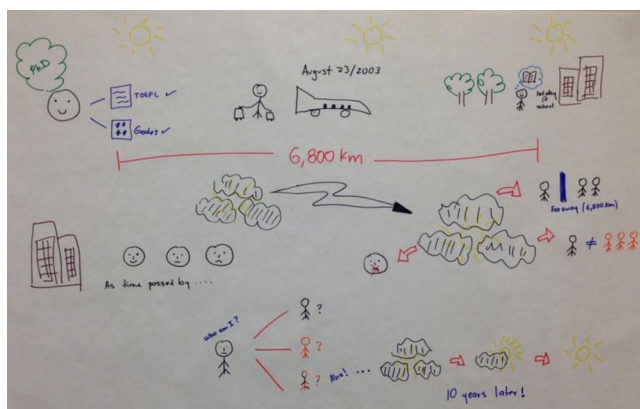 PhD
TOEFL
Grades
August 23/2003
1st day @
school
6,800 km
Far away (6,800km)
≠
As time passed by ....
who am I?
?
?
?
Aha! ...
10 years later!